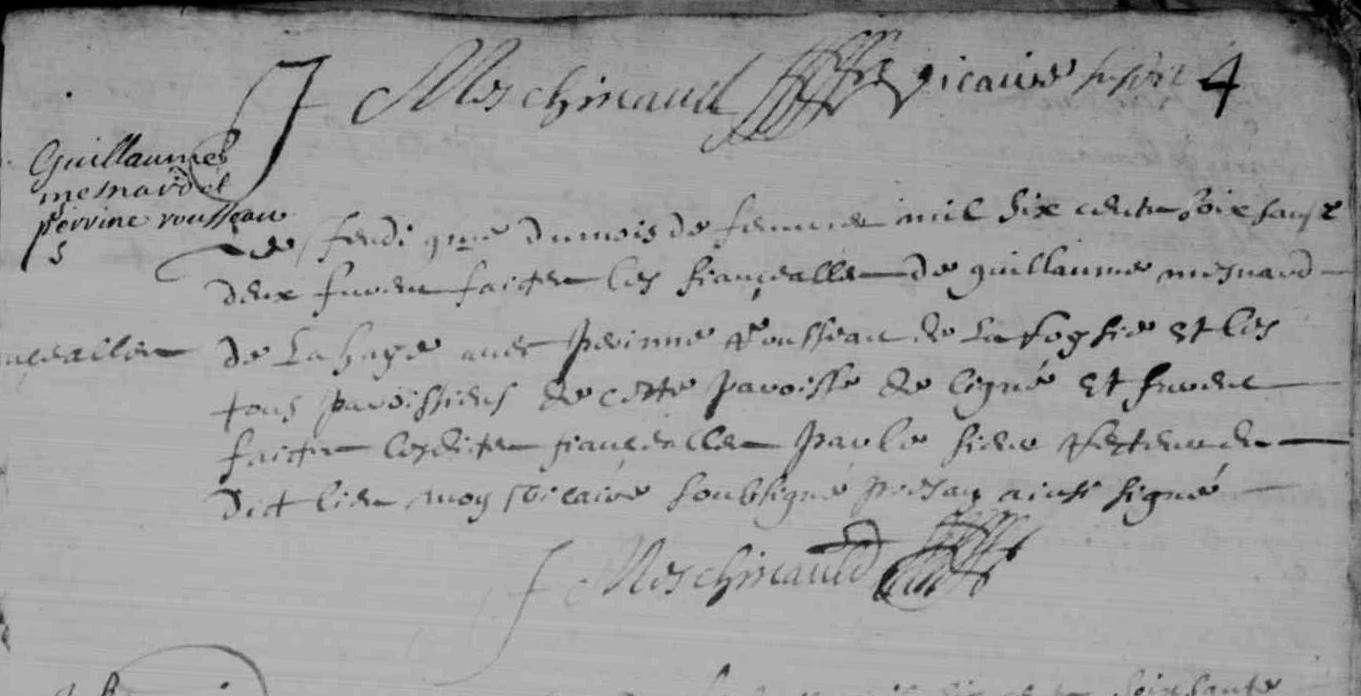 J Meschinaud vicaire susdit 4
Guillaume
mesnard et
perrine rousseau
s
Le jeudi dumois de febvrier mil six cents soixsante
deux furent faictes les fiançealles de guillaume mesnard
de La haye avec perinne Rousseau de La et les
tous paroissiens de cette paroisse de ligné et furent
faictes lesdites fiançealles par le sieur
dict lieu moy vicaire soubsigné presan ainsi signé
J Meschinauld